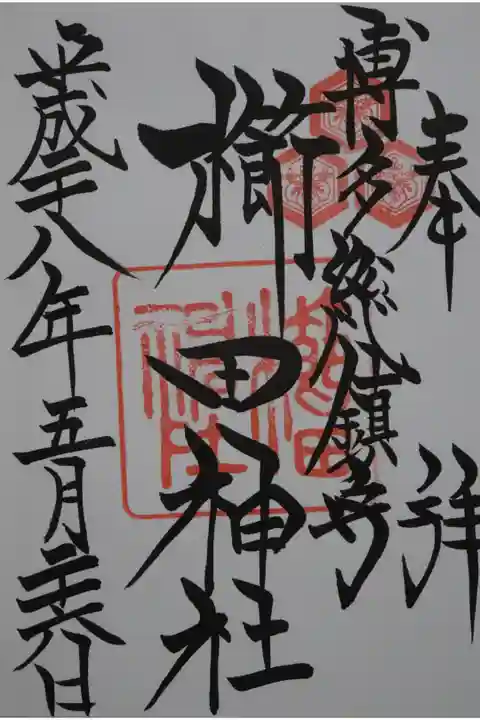 奉拝
博多総鎮守
櫛田神社
平成二十八年五月二十六日
櫛田神社